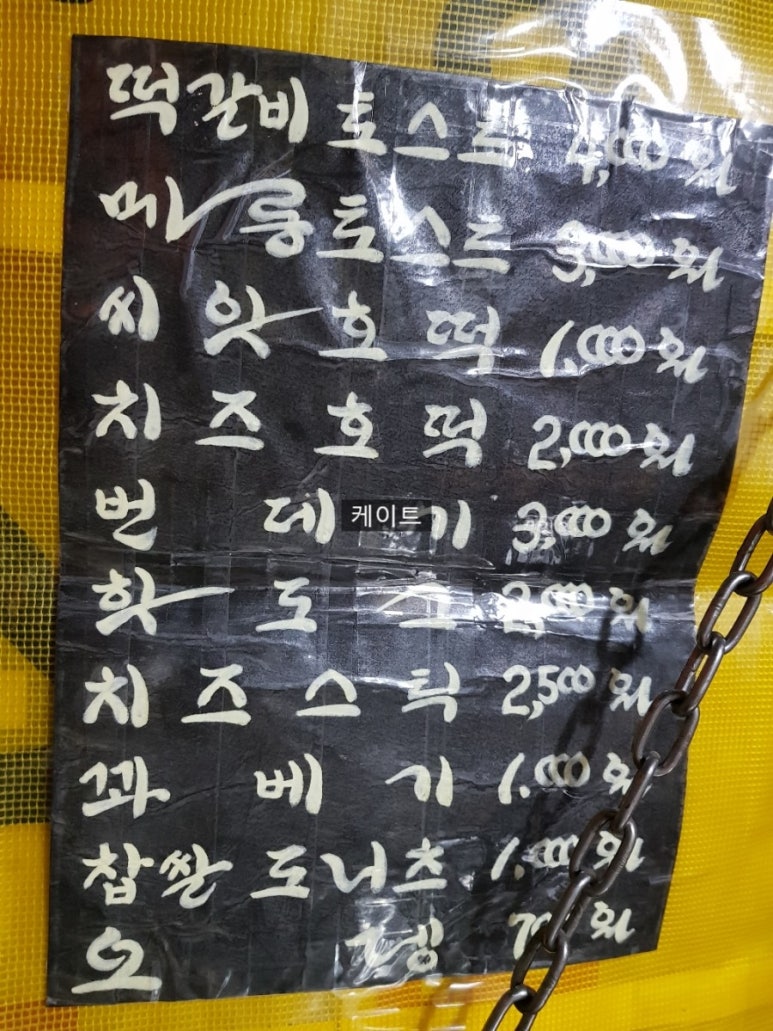 떡갈비 토스트 4,000원
메롱토스트 3,000원
씨앗호떡 1,000원
치즈호떡 2,000원
번데기 3,000원
핫도그 2,000원
치즈스틱 2,500원
꽈베기 1.000원
찹쌀 도너츠 1.000원
오뎅 700원
케이트